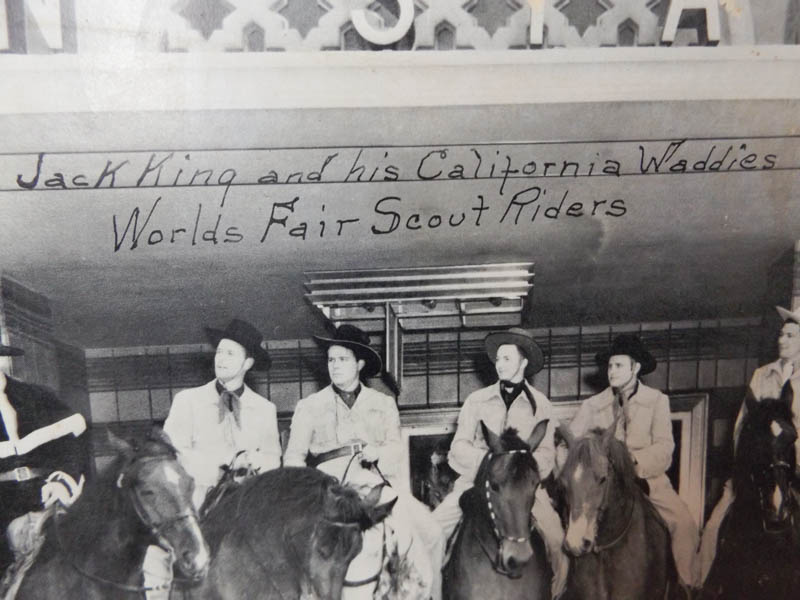 N STA
Jack King and his California Waddies
Worlds Fair Scout Riders